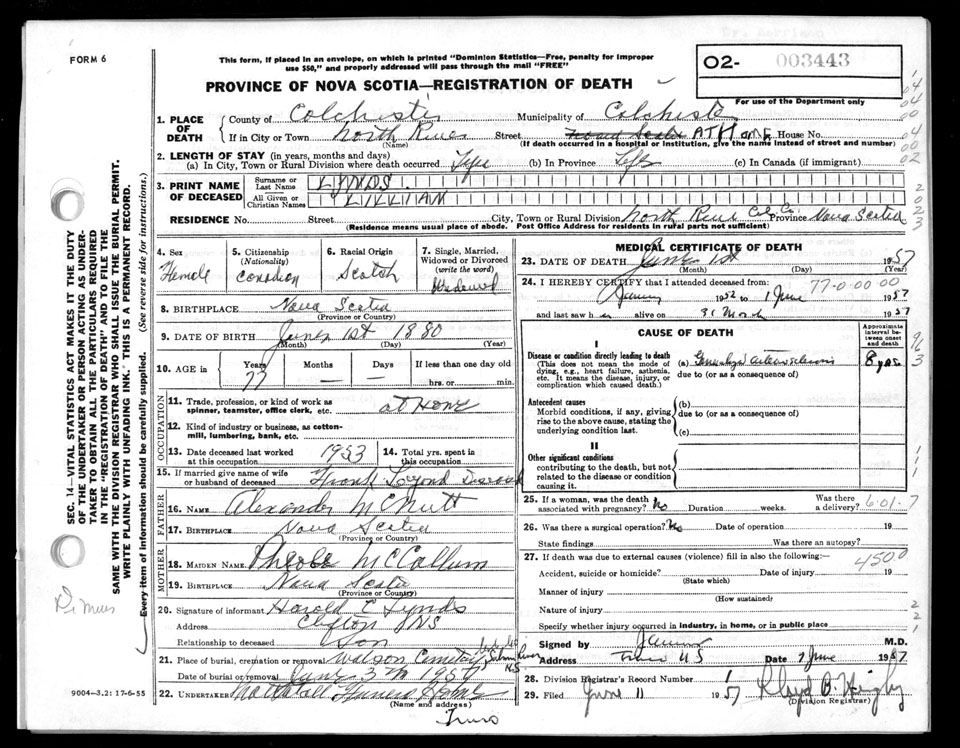 FORM 6
This form, if placed in an envelope, on which is printed "Dominion Statistics—Free, penalty for improper
use $50," and properly addressed will pass through the mail "FREE"
PROVINCE OF NOVA SCOTIA—REGISTRATION OF DEATH
O2- 003443
For use of the Department only
1. PLACE OF DEATH
County of Colchester Municipality of Colchester
If in City or Town North River Street AT HOME House No.
(Name) (If death occurred in a hospital or institution, give the name instead of street and number)
2. LENGTH OF STAY (in years, months and days)
(a) In City, Town or Rural Division where death occurred Life (b) In Province Life (c) In Canada (if immigrant)
3. PRINT NAME OF DECEASED
Surname or Last Name LYNDS.
All Given or Christian Names LILLIAN
RESIDENCE No. Street City, Town or Rural Division North River Col. Co. Province Nova Scotia
(Residence means usual place of abode. Post Office Address for residents in rural parts not sufficient)
4. Sex
Female
5. Citizenship (Nationality)
Canadian
6. Racial Origin
Scotch
7. Single, Married, Widowed or Divorced (write the word)
Widowed
8. BIRTHPLACE Nova Scotia
(Province or Country)
9. DATE OF BIRTH June 1st 1880
(Month) (Day) (Year)
10. AGE in Years Months Days If less than one day old
77 — — hrs. or min.
OCCUPATION
11. Trade, profession, or kind of work as spinner, teamster, office clerk, etc. at Home
12. Kind of industry or business, as cotton-mill, lumbering, bank, etc.
13. Date deceased last worked at this occupation 1953
14. Total yrs. spent in this occupation
15. If married give name of wife or husband of deceased Frank Lynds Deceased
FATHER
16. NAME Alexander McNutt
17. BIRTHPLACE Nova Scotia
(Province or Country)
MOTHER
18. MAIDEN NAME Phebe McCallum
19. BIRTHPLACE Nova Scotia
(Province or Country)
20. Signature of informant Harold E Lynds
Address Clifton NS
Relationship to deceased Son
21. Place of burial, cremation or removal Watson Cemetery Salmon River NS
Date of burial or removal June 3rd 1957
22. UNDERTAKER Funeral Home
(Name and address)
Truro
9004-3.2: 17-6-55
MEDICAL CERTIFICATE OF DEATH
23. DATE OF DEATH June 1st 1957
(Month) (Day) (Year)
24. I HEREBY CERTIFY that I attended deceased from: 77-0-00-00
January 1952 to 1 June 1957
and last saw her alive on 31 March 1957
CAUSE OF DEATH
Approximate interval between onset and death
I
Disease or condition directly leading to death (a) Generalized arteriosclerosis 8 yrs.
(This does not mean the mode of dying, e.g., heart failure, asthenia, etc. It means the disease, injury, or complication which caused death.)
due to (or as a consequence of)
Antecedent causes
Morbid conditions, if any, giving rise to the above cause, stating the underlying condition last.
(b)
due to (or as a consequence of)
(c)
II
Other significant conditions
contributing to the death, but not related to the disease or condition causing it.
25. If a woman, was the death associated with pregnancy? No Duration weeks. Was there a delivery? 6-01-7
26. Was there a surgical operation? No Date of operation 19
State findings Was there an autopsy?
27. If death was due to external causes (violence) fill in also the following:—
4500
Accident, suicide or homicide? Date of injury 19
(State which)
Manner of injury
(How sustained)
Nature of injury
Specify whether injury occurred in industry, in home, or in public place
Signed by M.D.
Address Truro NS Date 7 June 1957
28. Division Registrar's Record Number 1
29. Filed June 11 1957 Lloyd B.
(Division Registrar)
SEC. 14—VITAL STATISTICS ACT MAKES IT THE DUTY
OF THE UNDERTAKER OR PERSON ACTING AS UNDER-
TAKER TO OBTAIN ALL THE PARTICULARS REQUIRED
IN THE "REGISTRATION OF DEATH" AND TO FILE THE
SAME WITH THE DIVISION REGISTRAR WHO SHALL ISSUE THE BURIAL PERMIT.
WRITE PLAINLY WITH UNFADING INK. THIS IS A PERMANENT RECORD.
Every item of information should be carefully supplied. (See reverse side for instructions.)